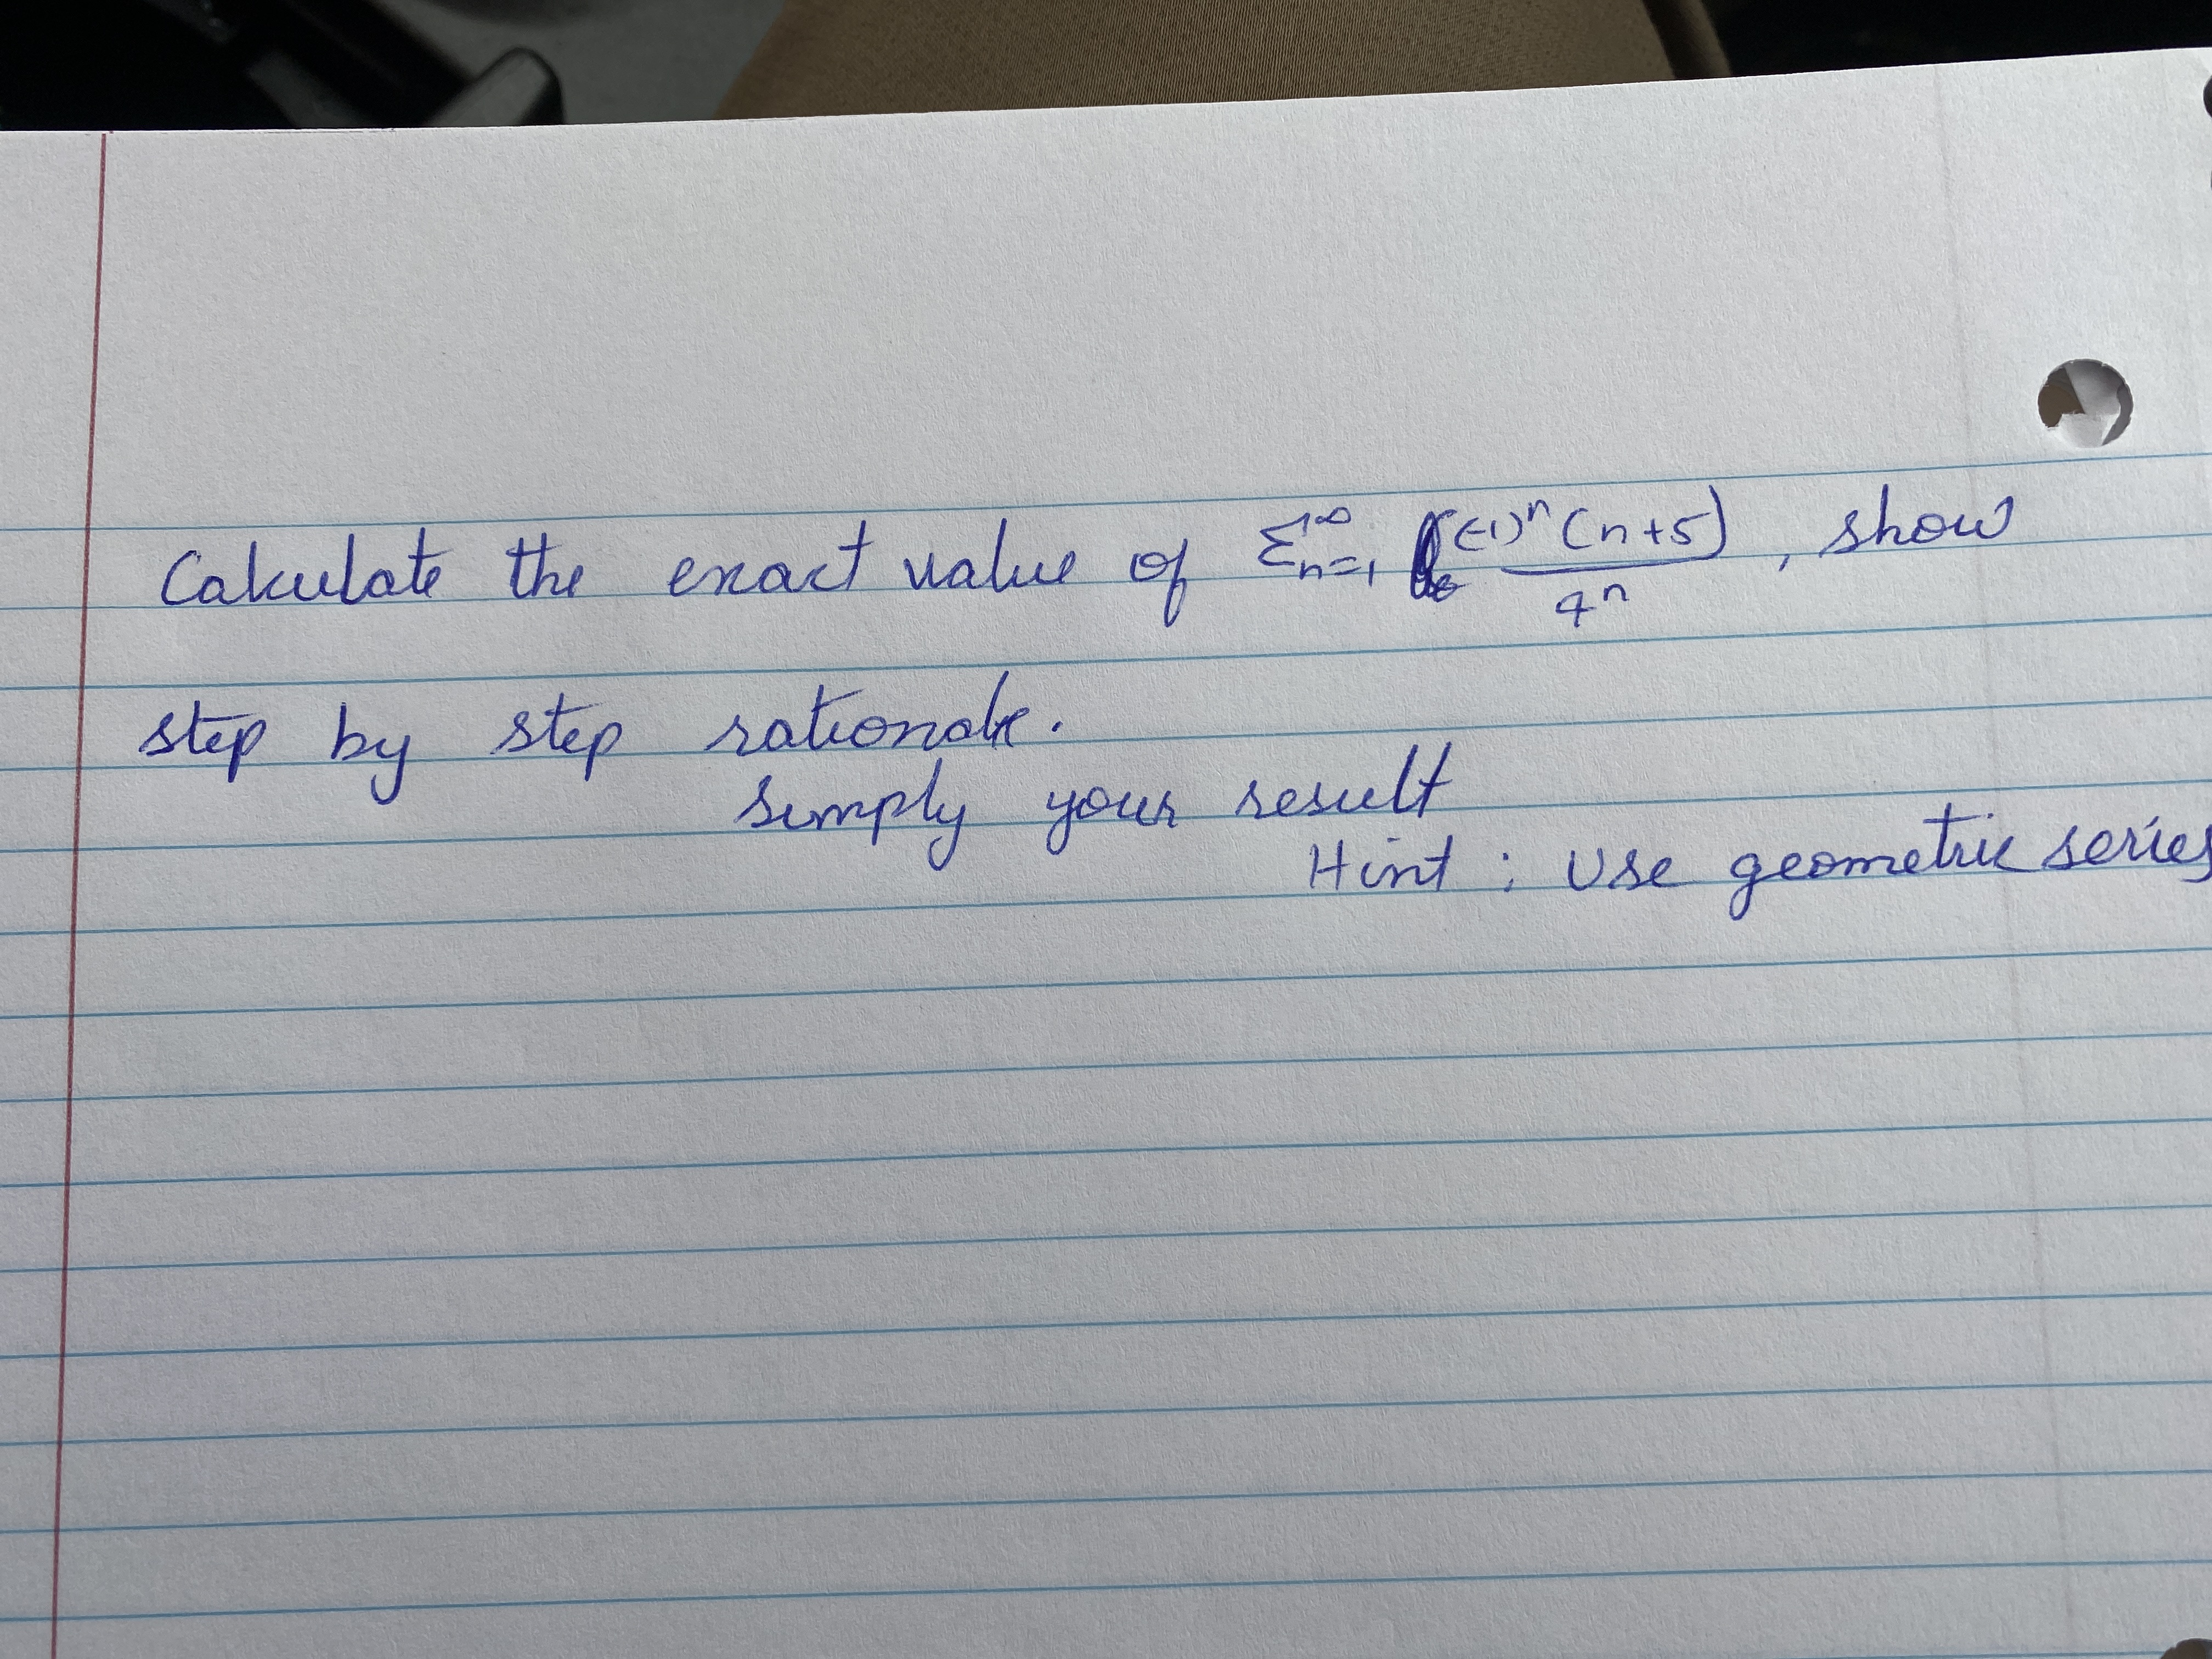 Calculate the exact value of Σ^∞_{n=1} (-1)^n (n+5) / 4^n, show
step by step rationale.
simply your result
Hint : Use geometric series